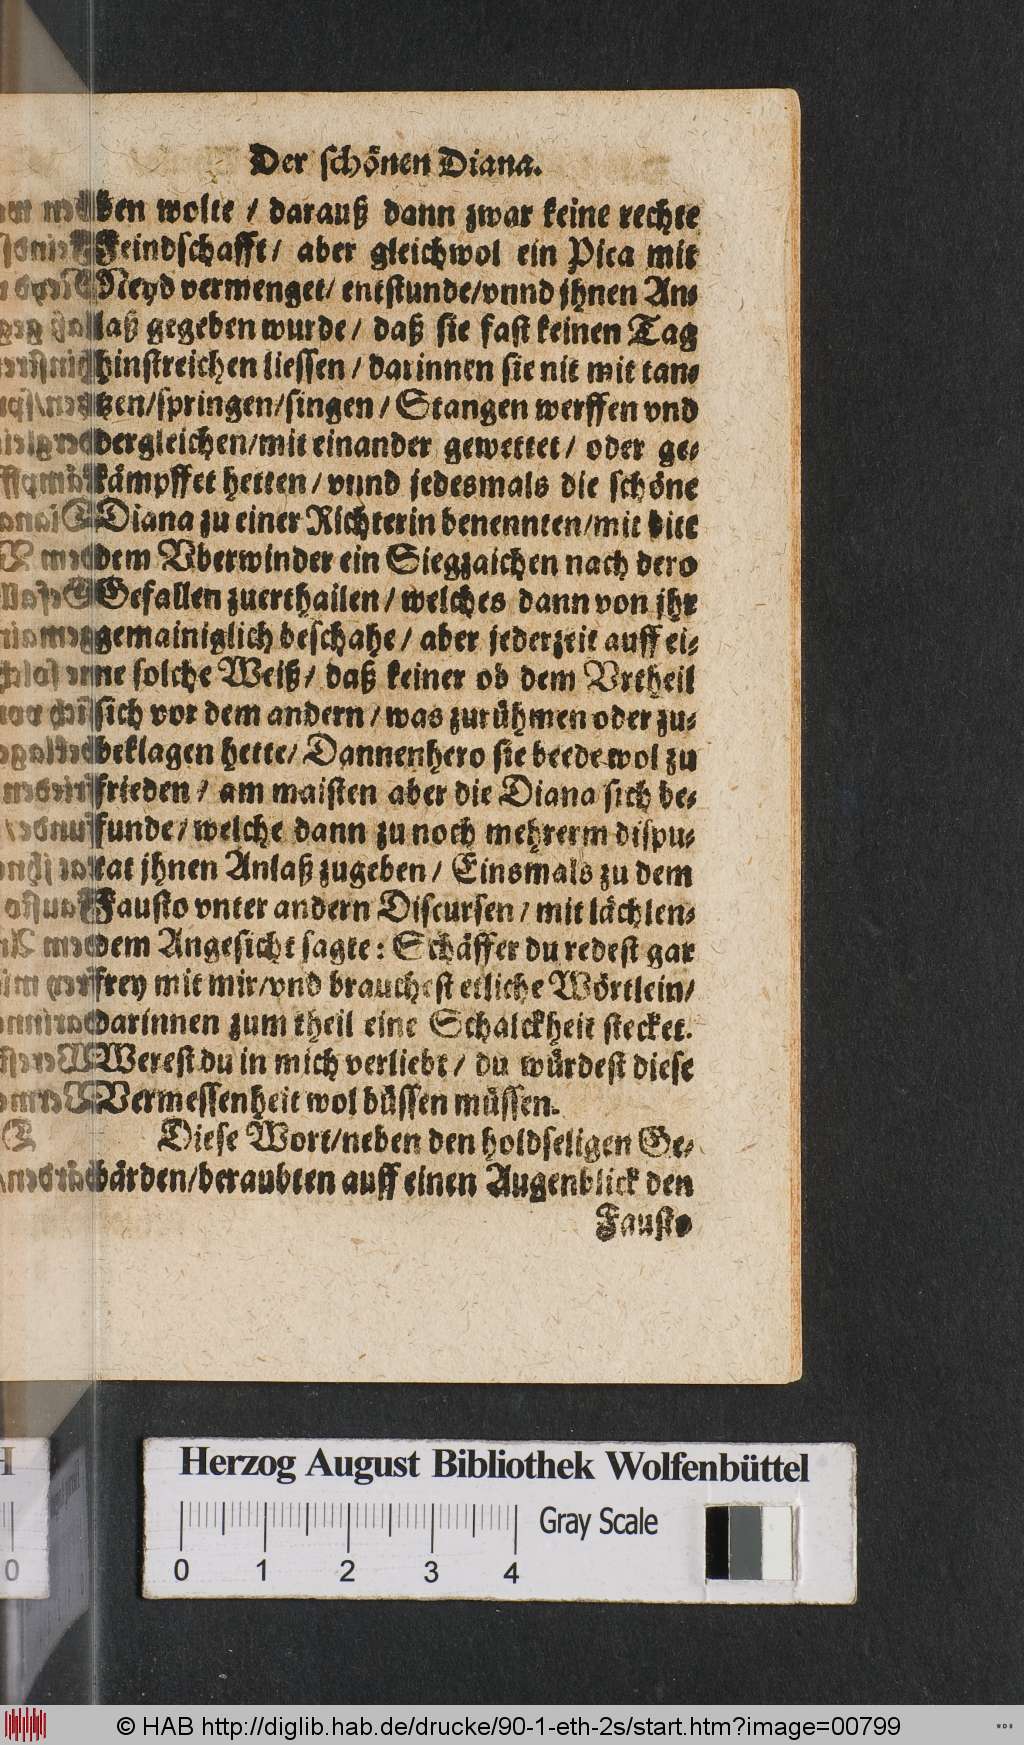 Der schönen Diana.
ben wolte / darauß dann zwar keine rechte
Feindschafft / aber gleichwol ein Pica mit
Neyd vermenget / entstunde / vnnd jhnen An-
laß gegeben wurde / daß sie fast keinen Tag
hinstreichen liessen / darinnen sie nit mit tan-
tzen / springen / singen / Stangen werffen vnd
dergleichen / mit einander gewettet / oder ge-
kämpffet hetten / vnnd jedesmals die schöne
Diana zu einer Richterin benennten / mit bitt
dem Vberwinder ein Siegzaichen nach dero
Gefallen zuerthailen / welches dann von jhr
gemainiglich beschahe / aber jederzeit auff ei-
ne solche Weiß / daß keiner ob dem Vrtheil
sich vor dem andern / was zurühmen oder zu-
beklagen hette / Dannenhero sie beede wol zu
frieden / am maisten aber die Diana sich be-
funde / welche dann zu noch mehrerm dispu-
tat jhnen Anlaß zugeben / Einsmals zu dem
Fausto vnter andern Discursen / mit lächlen-
dem Angesicht sagte: Schäffer du redest gar
frey mit mir / vnd brauchest etliche Wörtlein /
darinnen zum theil eine Schalckheit stecket.
Werest du in mich verliebt / du würdest diese
Vermessenheit wol büssen müssen.
Diese Wort / neben den holdseligen Ge-
bärden / beraubten auff einen Augenblick den
Fausto
Herzog August Bibliothek Wolfenbüttel
Gray Scale
0 1 2 3 4
0
© HAB http://diglib.hab.de/drucke/90-1-eth-2s/start.htm?image=00799